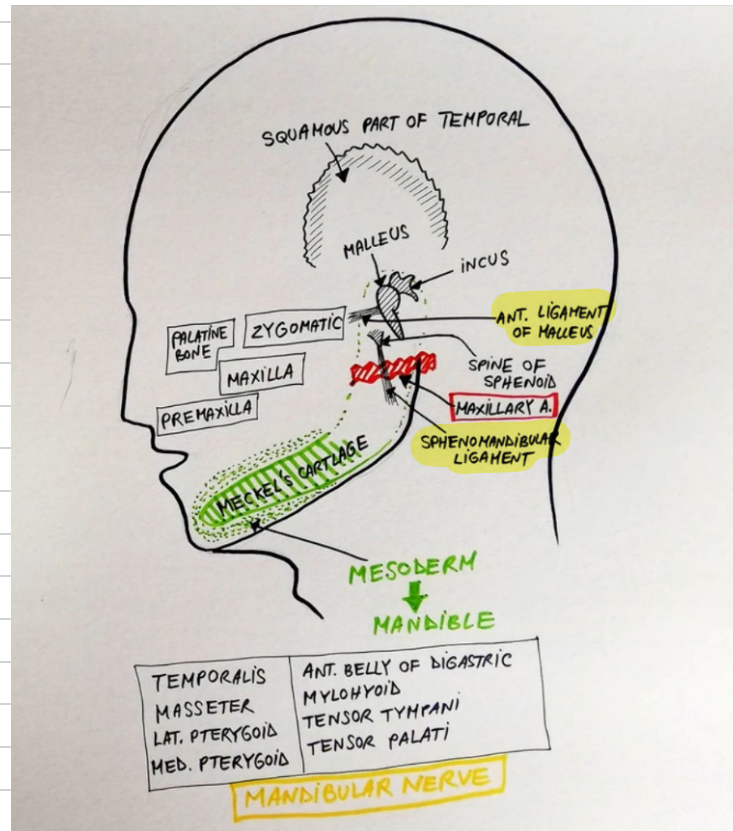 SQUAMOUS PART OF TEMPORAL
MALLEUS
INCUS
ANT. LIGAMENT
OF MALLEUS
ZYGOMATIC
PALATINE
BONE
MAXILLA
PREMAXILLA
SPINE OF
SPHENOID
MAXILLARY A.
SPHENOMANDIBULAR
LIGAMENT
MECKEL'S CARTILAGE
MESODERM
MANDIBLE
TEMPORALIS
MASSETER
LAT. PTERYGOID
MED. PTERYGOID
ANT. BELLY OF DIGASTRIC
MYLOHYOID
TENSOR TYMPANI
TENSOR PALATI
MANDIBULAR NERVE